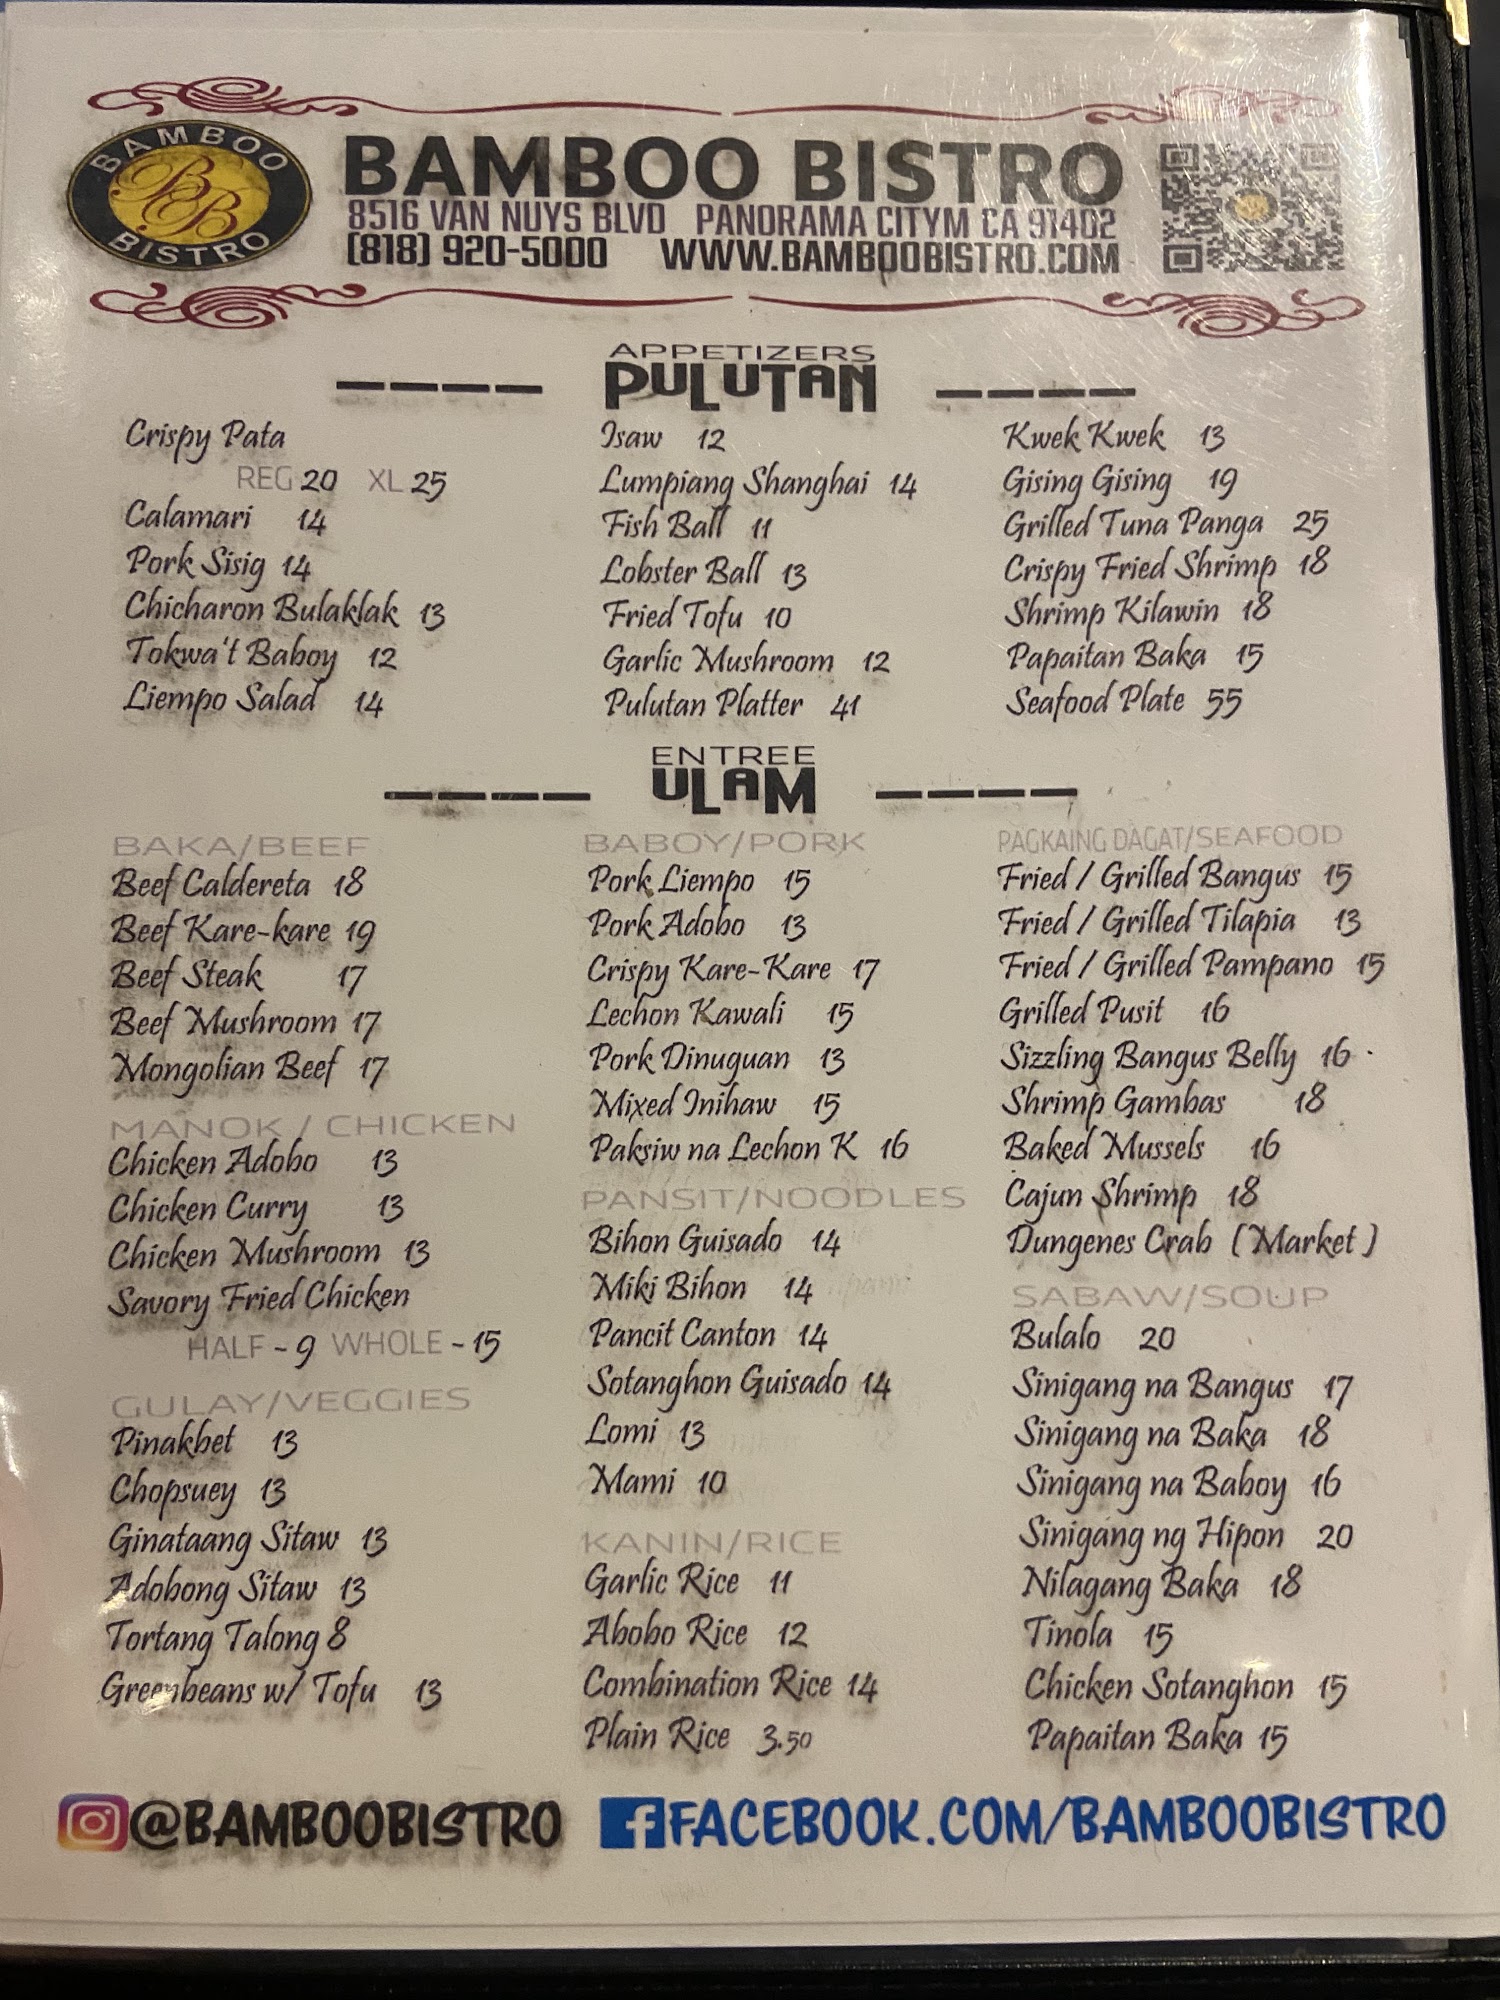 BAMBOO
BB
BISTRO
BAMBOO BISTRO
8516 VAN NUYS BLVD PANORAMA CITYM CA 91402
(818) 920-5000 WWW.BAMBOOBISTRO.COM
APPETIZERS
PULUTAN
Crispy Pata
REG 20 XL 25
Calamari 14
Pork Sisig 14
Chicharon Bulaklak 13
Tokwa't Baboy 12
Liempo Salad 14
Isaw 12
Lumpiang Shanghai 14
Fish Ball 11
Lobster Ball 13
Fried Tofu 10
Garlic Mushroom 12
Pulutan Platter 41
Kwek Kwek 13
Gising Gising 19
Grilled Tuna Panga 25
Crispy Fried Shrimp 18
Shrimp Kilawin 18
Papaitan Baka 15
Seafood Plate 55
ENTREE
ULAM
BAKA/BEEF
Beef Caldereta 18
Beef Kare-kare 19
Beef Steak 17
Beef Mushroom 17
Mongolian Beef 17
MANOK / CHICKEN
Chicken Adobo 13
Chicken Curry 13
Chicken Mushroom 13
Savory Fried Chicken
HALF - 9 WHOLE - 15
GULAY/VEGGIES
Pinakbet 13
Chopsuey 13
Ginataang Sitaw 13
Adobong Sitaw 13
Tortang Talong 8
Greenbeans w/ Tofu 13
BABOY/PORK
Pork Liempo 15
Pork Adobo 13
Crispy Kare-Kare 17
Lechon Kawali 15
Pork Dinuguan 13
Mixed Inihaw 15
Paksiw na Lechon K 16
PANSIT/NOODLES
Bihon Guisado 14
Miki Bihon 14
Pancit Canton 14
Sotanghon Guisado 14
Lomi 13
Mami 10
KANIN/RICE
Garlic Rice 11
Abobo Rice 12
Combination Rice 14
Plain Rice 3.50
PAGKAING DAGAT/SEAFOOD
Fried / Grilled Bangus 15
Fried / Grilled Tilapia 13
Fried / Grilled Pampano 15
Grilled Pusit 16
Sizzling Bangus Belly 16
Shrimp Gambas 18
Baked Mussels 16
Cajun Shrimp 18
Dungenes Crab (Market)
SABAW/SOUP
Bulalo 20
Sinigang na Bangus 17
Sinigang na Baka 18
Sinigang na Baboy 16
Sinigang ng Hipon 20
Nilagang Baka 18
Tinola 15
Chicken Sotanghon 15
Papaitan Baka 15
@BAMBOOBISTRO
FACEBOOK.COM/BAMBOOBISTRO